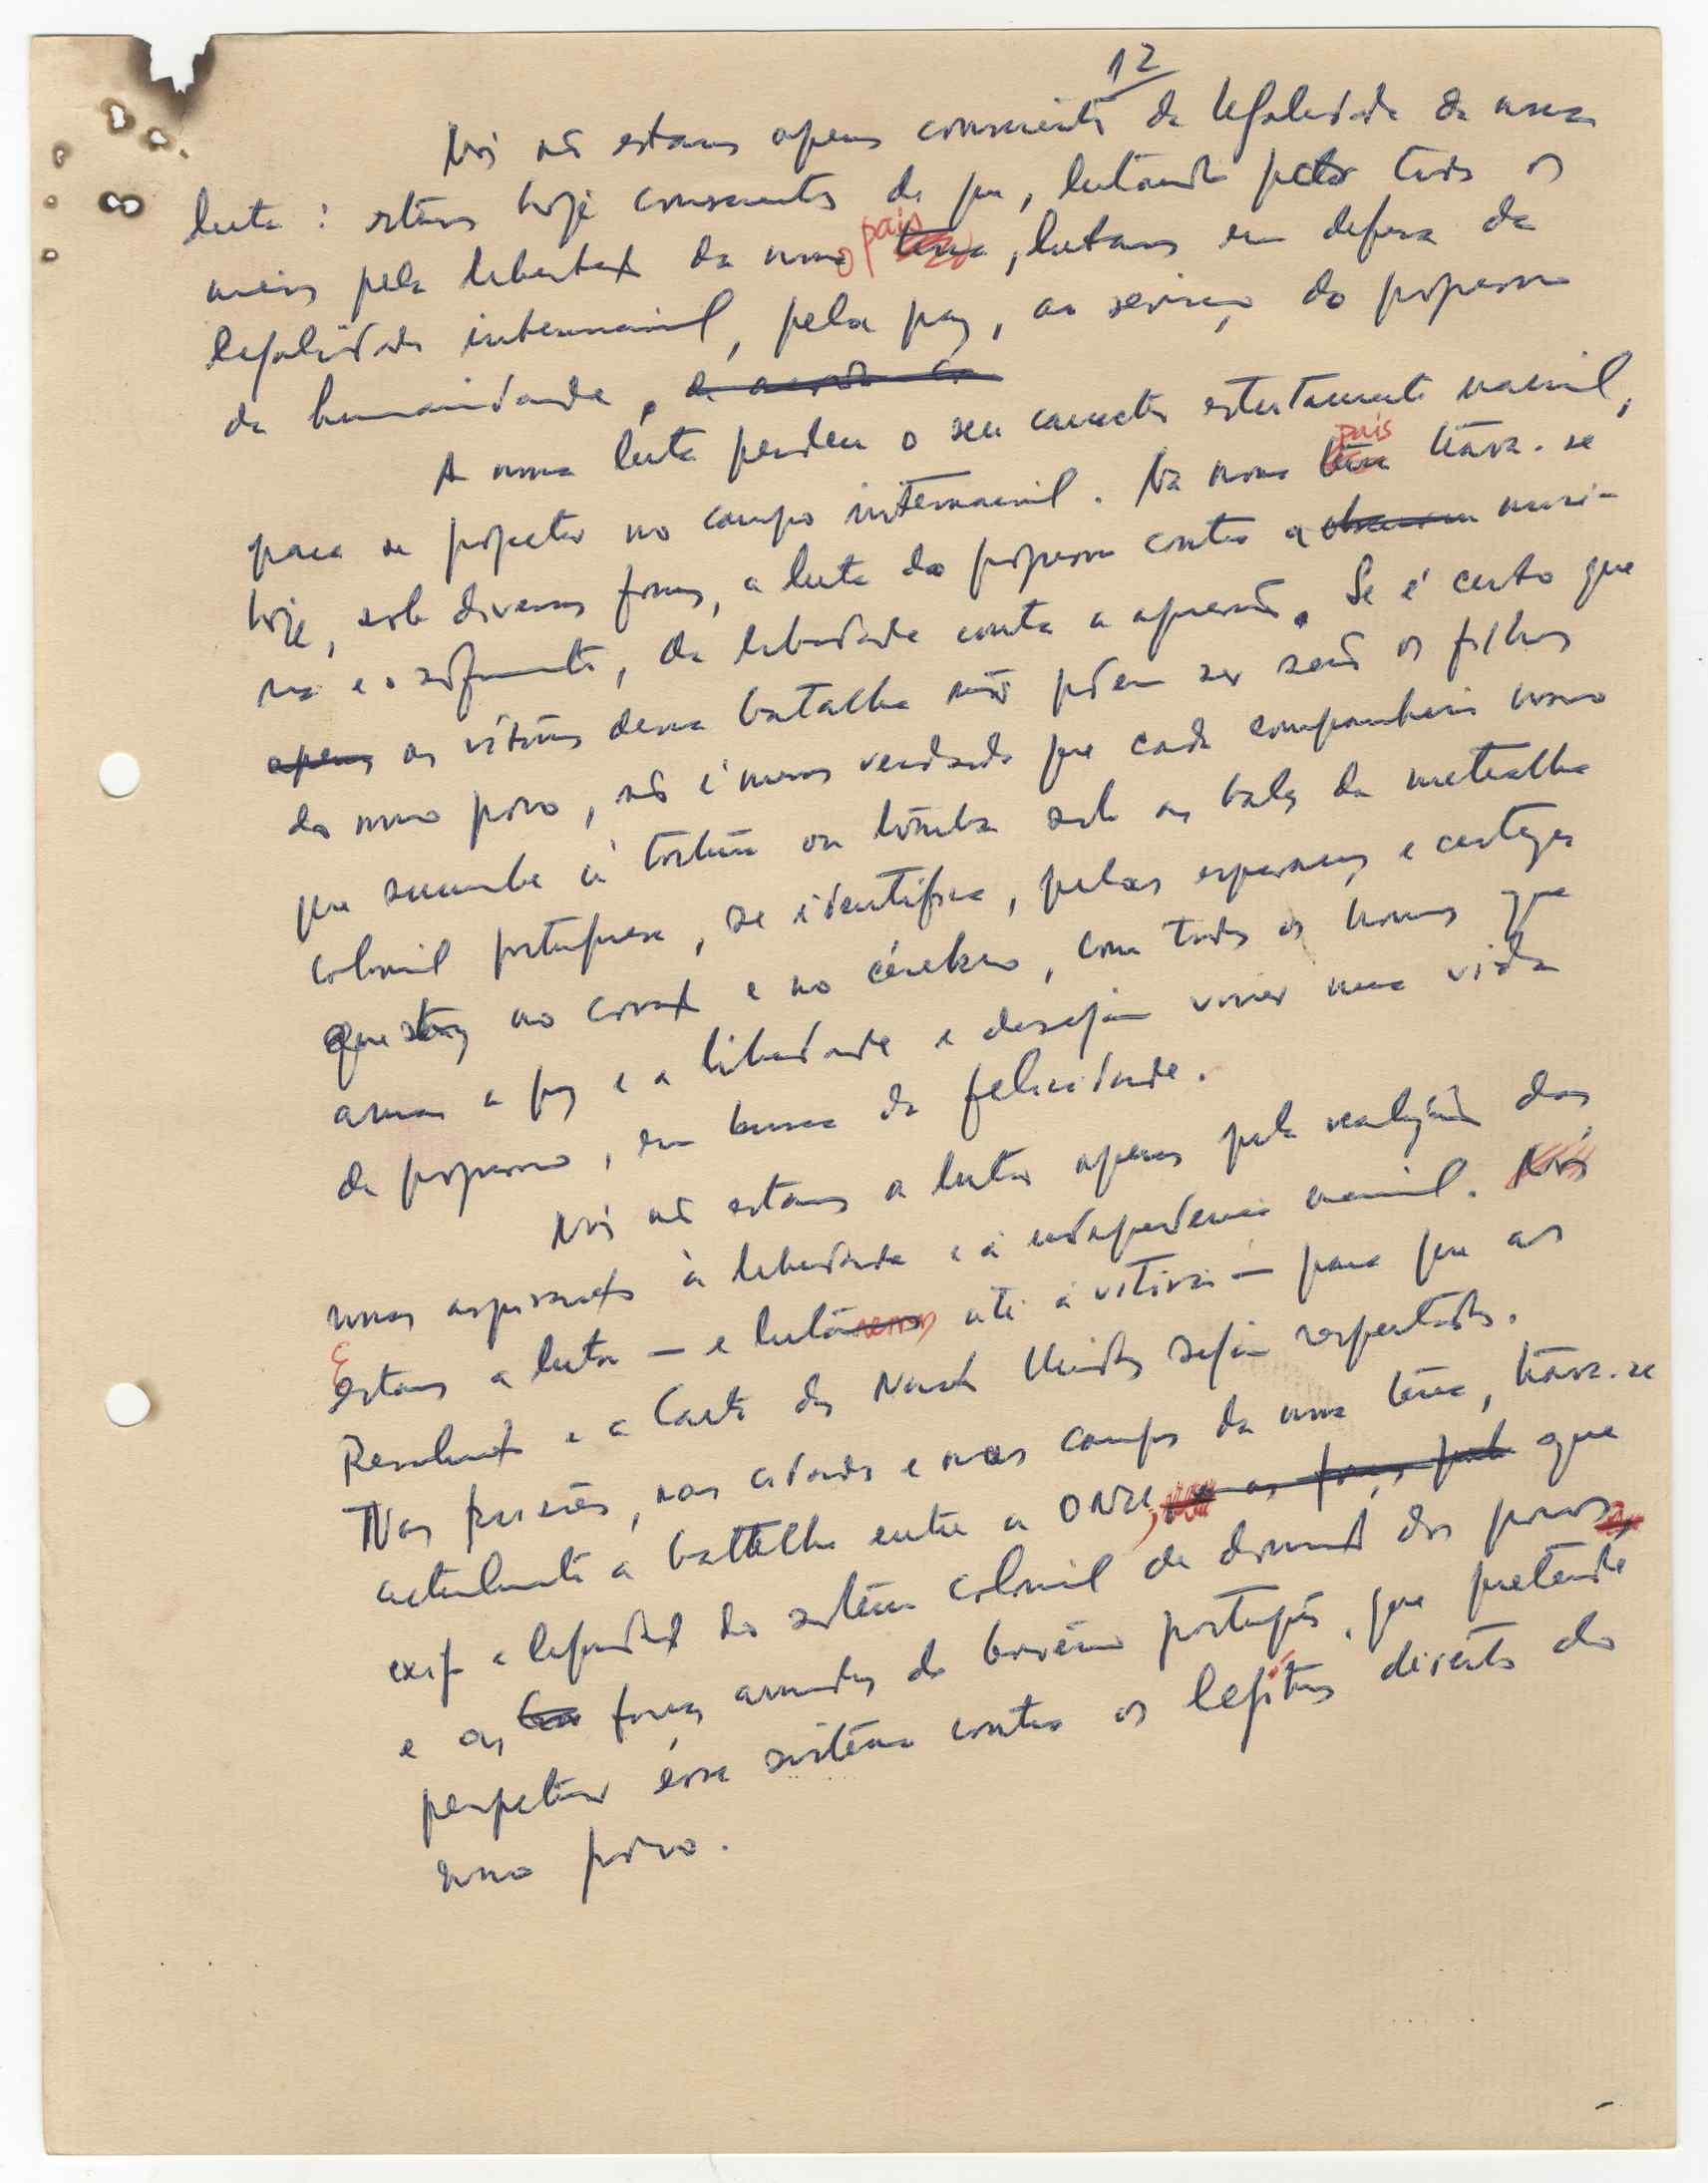 12
Nós não estamos apenas conscientes da legalidade da nossa
luta: estamos hoje conscientes de que, lutando por todos os
meios pela libertação da nosso país, lutamos em defesa da
legalidade internacional, pela paz, ao serviço do progresso
da humanidade.
A nossa luta perdeu o seu caracter estritamente nacional,
para se projectar no campo internacional. No nosso país trava-se
hoje, sob diversas formas, a luta do progresso contra a misé-
ria e o sofrimento, da liberdade contra a opressão. Se é certo que
as vítimas dessa batalha não podem ser senão os filhos
do nosso povo, não é menos verdade que cada companheiro nosso
que sucumbe à tortura ou tomba sob as balas da metralha
colonial portuguesa, se identifica, pelas esperanças e certezas
que temos no coração e no cérebro, com todos os homens que
amam a paz e a liberdade e desejam viver uma vida
de progresso, em busca da felicidade.
Nós não estamos a lutar apenas pela realização das
nossas aspirações à liberdade e à independência nacional.
Estamos a lutar — e lutaremos até à vitória — para que as
Resoluções e a Carta das Nações Unidas sejam respeitadas.
Nas prisões, nas cidades e nos campos da nossa terra, trava-se
actualmente a batalha entre a ONU, que
exige a liquidação do sistema colonial de dominação dos povos,
e as forças armadas do Govêrno português, que pretende
perpetuar êsse sistêma contra os legítimos direitos do
nosso povo.